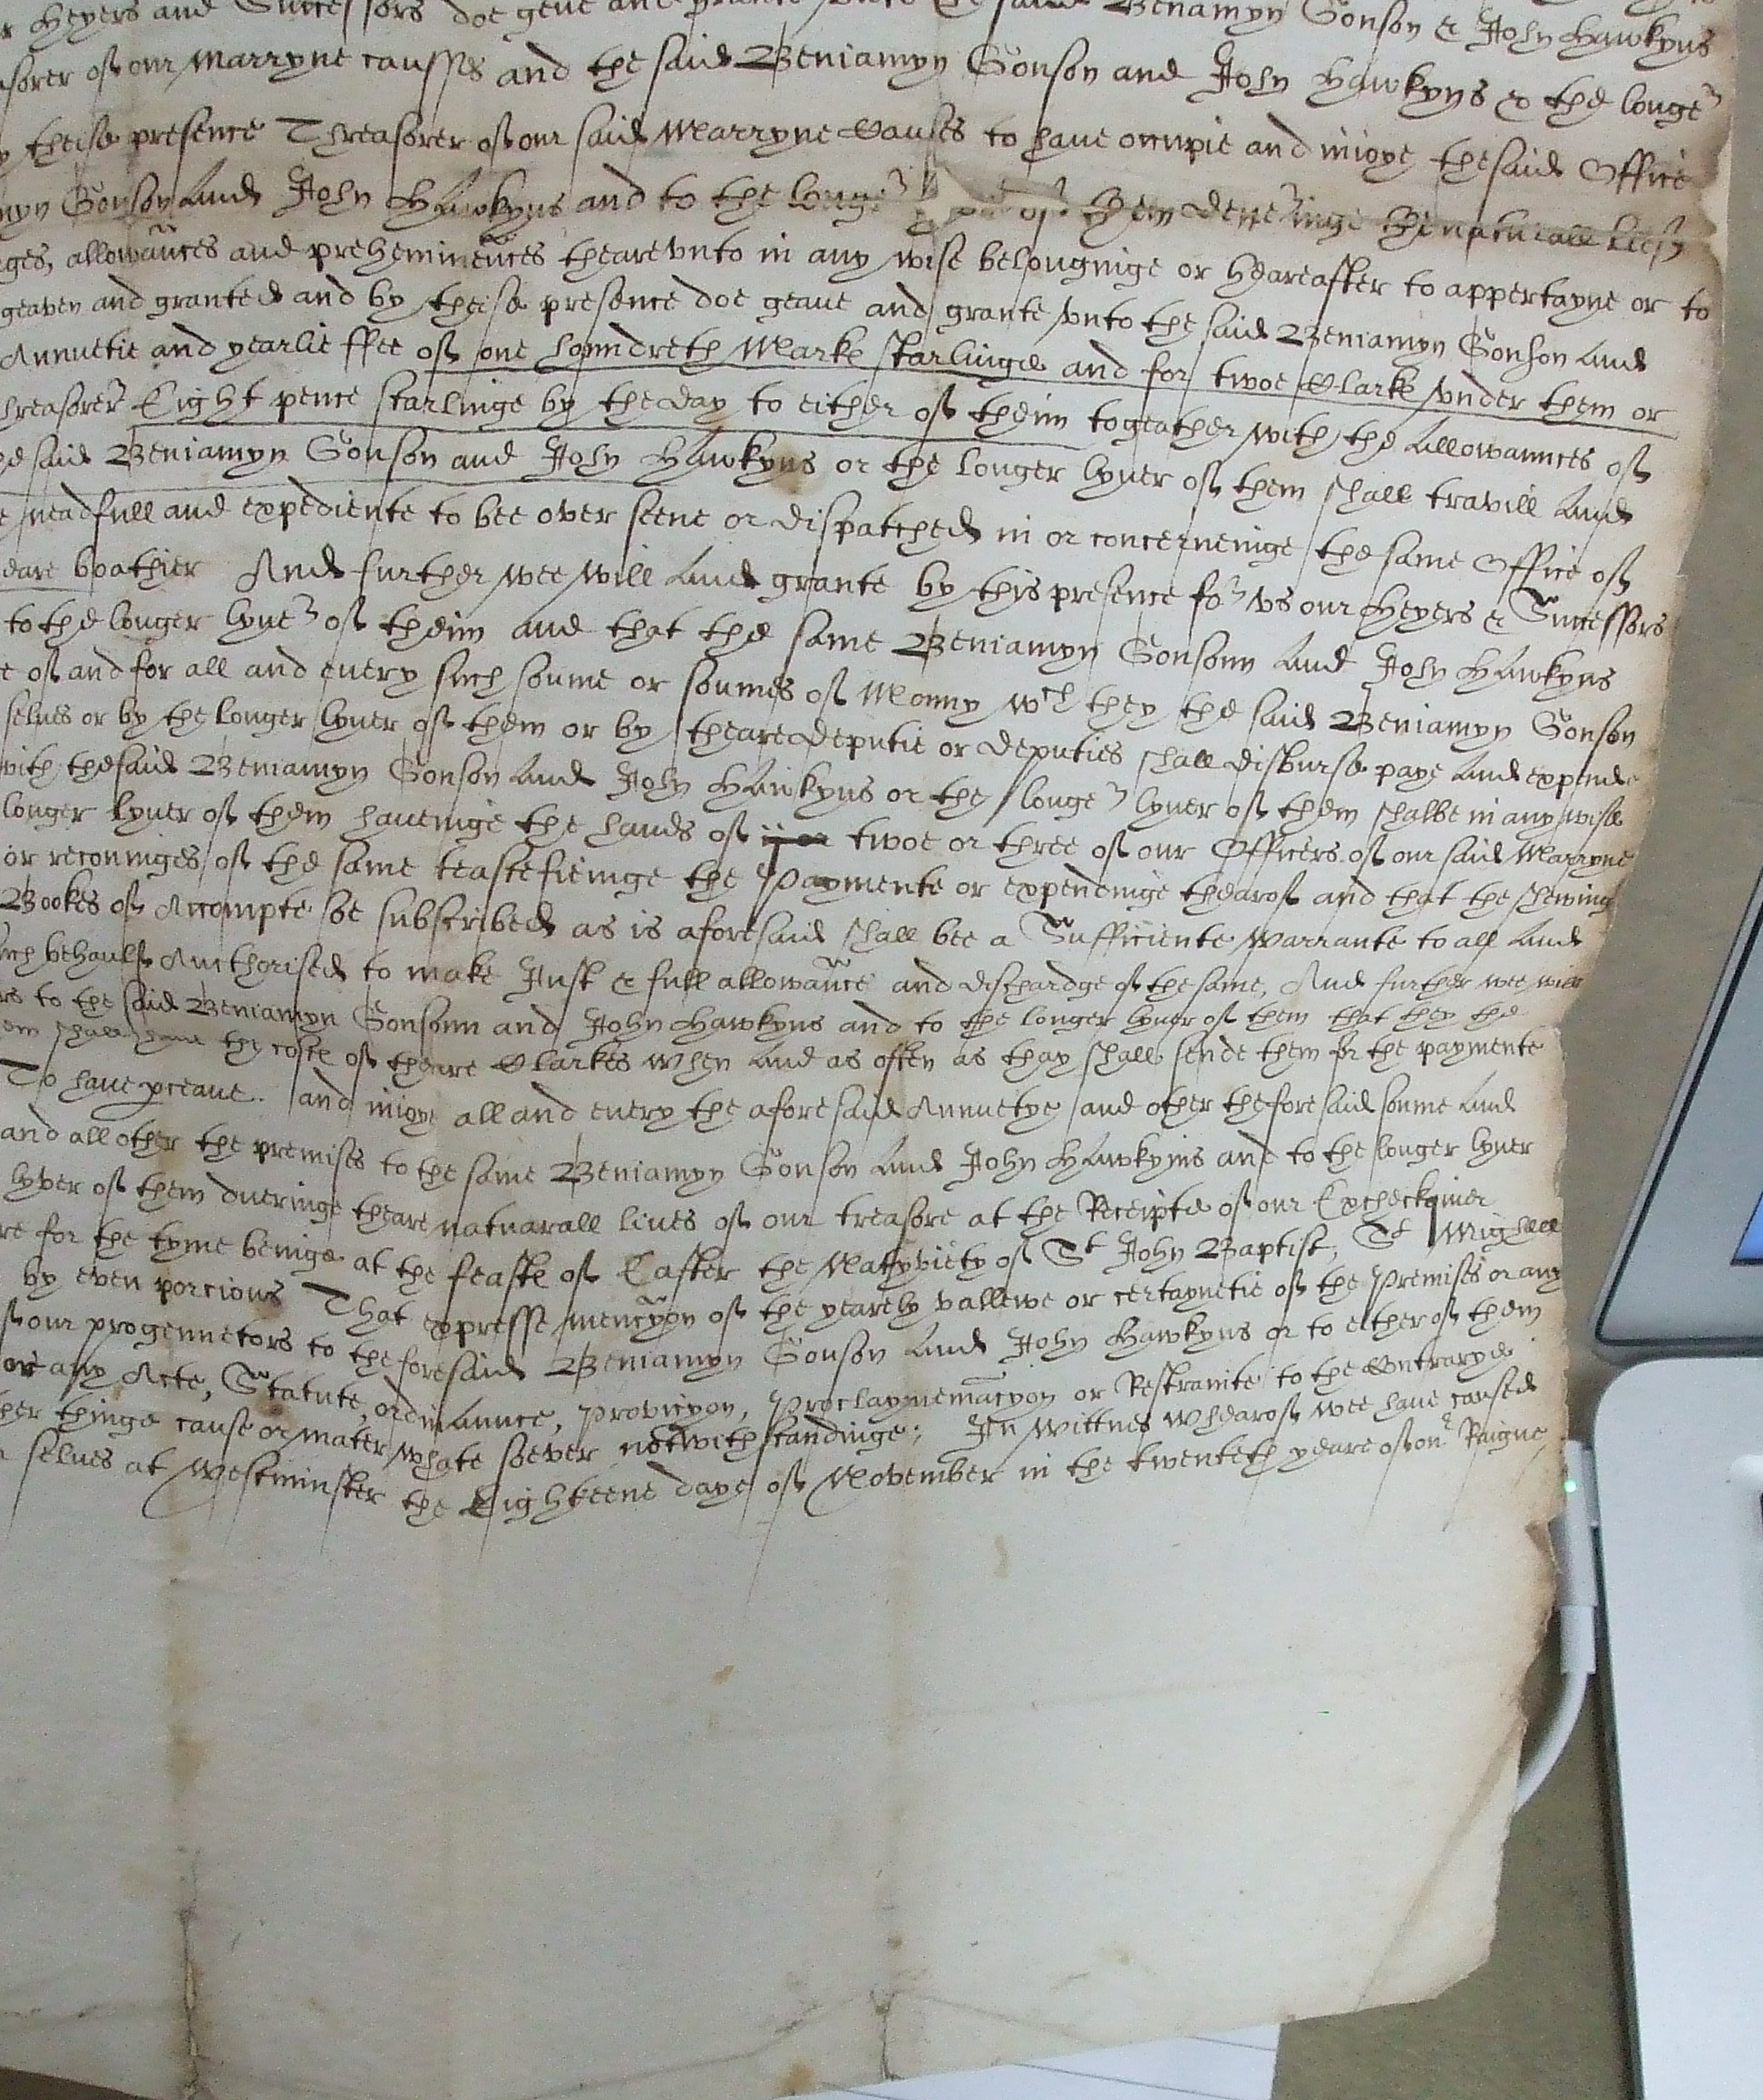 Heyers and Successors doe geue and graunte vnto the said Beniamyn Gonson & John Hawkyns
asorer of our Marryne causses and the said Beniamyn Gonson and John Hawkyns & the longer
theise presence Threasorer of our said Marryne Causes to haue occupie and inioye the said Office
myn Gonson and John Hawkyns and to the longer of them the naturall
eges, allowaunces and preheminences theare vnto in any wise belonginge or heareafter to appertayne or to
geaven and granted and by theise presence doe geaue and grante vnto the said Beniamyn Gonson and
Annuetie and yearlie ffee of one houndreth Marke starlinge and for twoe Clarke vnder them or
threasorer Eight pence starlinge by the day to either of theim togeather with the Allowannces of
said Beniamyn Gonson and John Hawkyns or the longer lyuer of them shall travill and
neadfull and expediente to bee over seene or dispatched in or concerneinge the same Office of
boathier And further wee will and grante by this presence for vs our Heyers & Successors
to the longer lyuer of theim and that the same Beniamyn Gonsonn and John Hawkyns
of and for all and euery such soume or soumes of Monny wch they the said Beniamyn Gonson
selues or by the longer lyuer of them or by theare deputie or deputies shall disburse paye and expende
with the said Beniamyn Gonson and John Hawkyns or the longer lyuer of them shalbe in any wise
longer lyuer of them haueinge the hands of twoe or three of our Officers of our said Marryne
or reconinges of the same teastefieinge the Paymente or expendinge thearof and that the shewing
Bookes of Accompte be subscribed as is aforesaid shall bee a Sufficiente Warrante to all and
behaulfe Aucthorised to make Just & full allowaunce and dischardge of the same, And further wee will
to the said Beniamyn Gonsonn and John Hawkyns and to the longer lyuer of them that they the
shall haue the coste of theare Clarkes when and as often as thay shall sende them for the paymente
To haue preaue and inioye all and euery the aforesaid Annuetye and other the foresaid soume and
and all other the premises to the same Beniamyn Gonson and John Hawkyns and to the longer lyuer
lyver of them dueringe theare natuarall liues of our treasore at the Receipte of our Excheckquier
for the tyme beinge at the feaste of Easter the Natyviety of St John Baptist, St Mighell
by even porcions That expresse mencyon of the yearely vallewe or certaynetie of the Premises or any
of our progennetors to the foresaid Beniamyn Gonson and John Hawkyns or to either of them
or any Acte, Statute, ordinaunce, provicyon, Proclaymemacyon or Restrainte to the Contrarye
thinge cause or mater whate soever notwithstandinge; In Wittnes whearof wee haue caused
selues at Westminster the Eighteene daye of November in the twenteth yeare of our Raigne